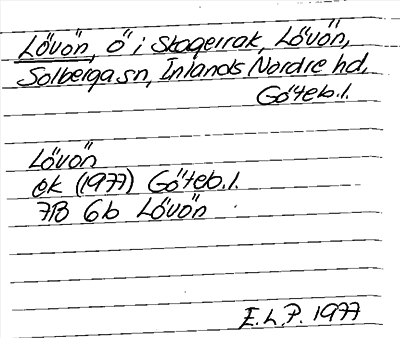 Lövön, ö i Skagerrak, Lövön,
Solberga sn, Inlands Nordre hd,
Göteb.l.
Lövön
ek (1977) Göteb.l.
7B 6b Lövön
E.L.P. 1977